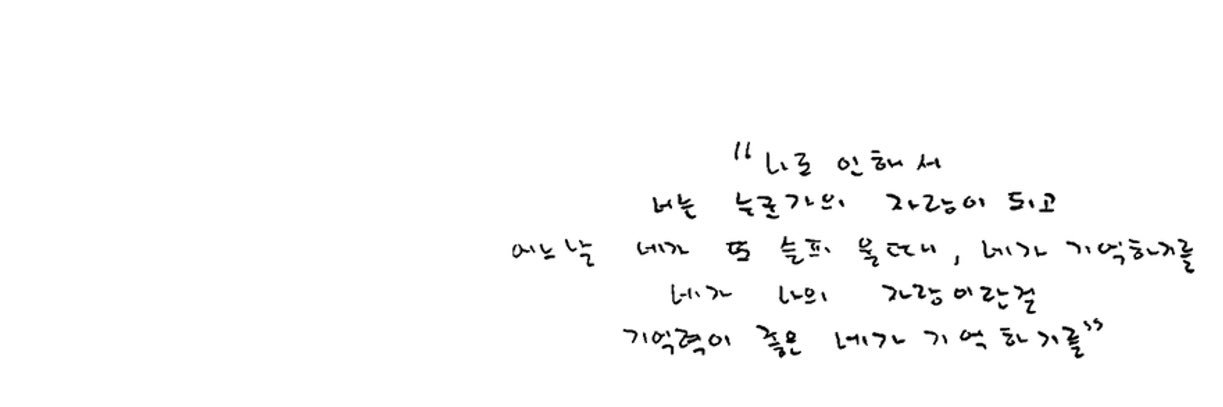 "나로 인해서
너는 누군가의 자랑이 되고
어느날 네가 또 슬프 울때, 네가 기억하기를
네가 나의 자랑이란걸
기억력이 좋은 네가 기억하기를"